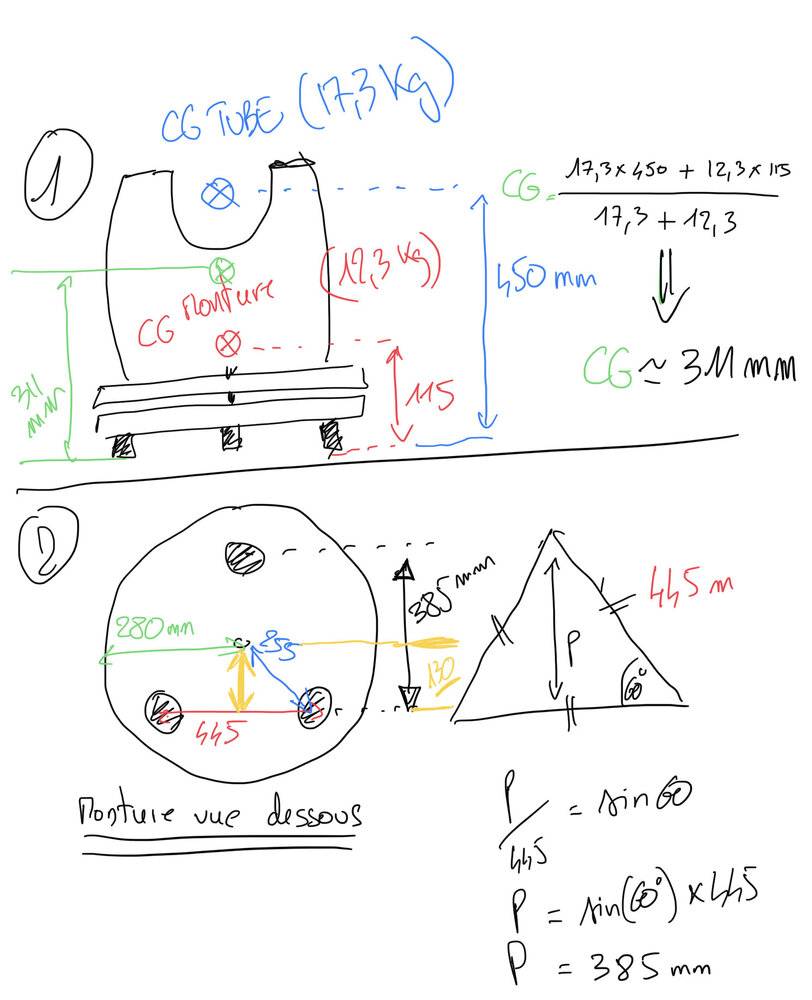 CG TUBE (17,3 Kg)
1
CG = 17,3 x 450 + 12,3 x 115
17,3 + 12,3
(12,3 Kg)
CG Monture
450 mm
CG ≃ 311 mm
311 mm
115
2
385 mm
445 m
280 mm
255
130
P
60°
445
Monture vue dessous
P/445 = sin 60
P = sin(60°) x 445
P = 385 mm